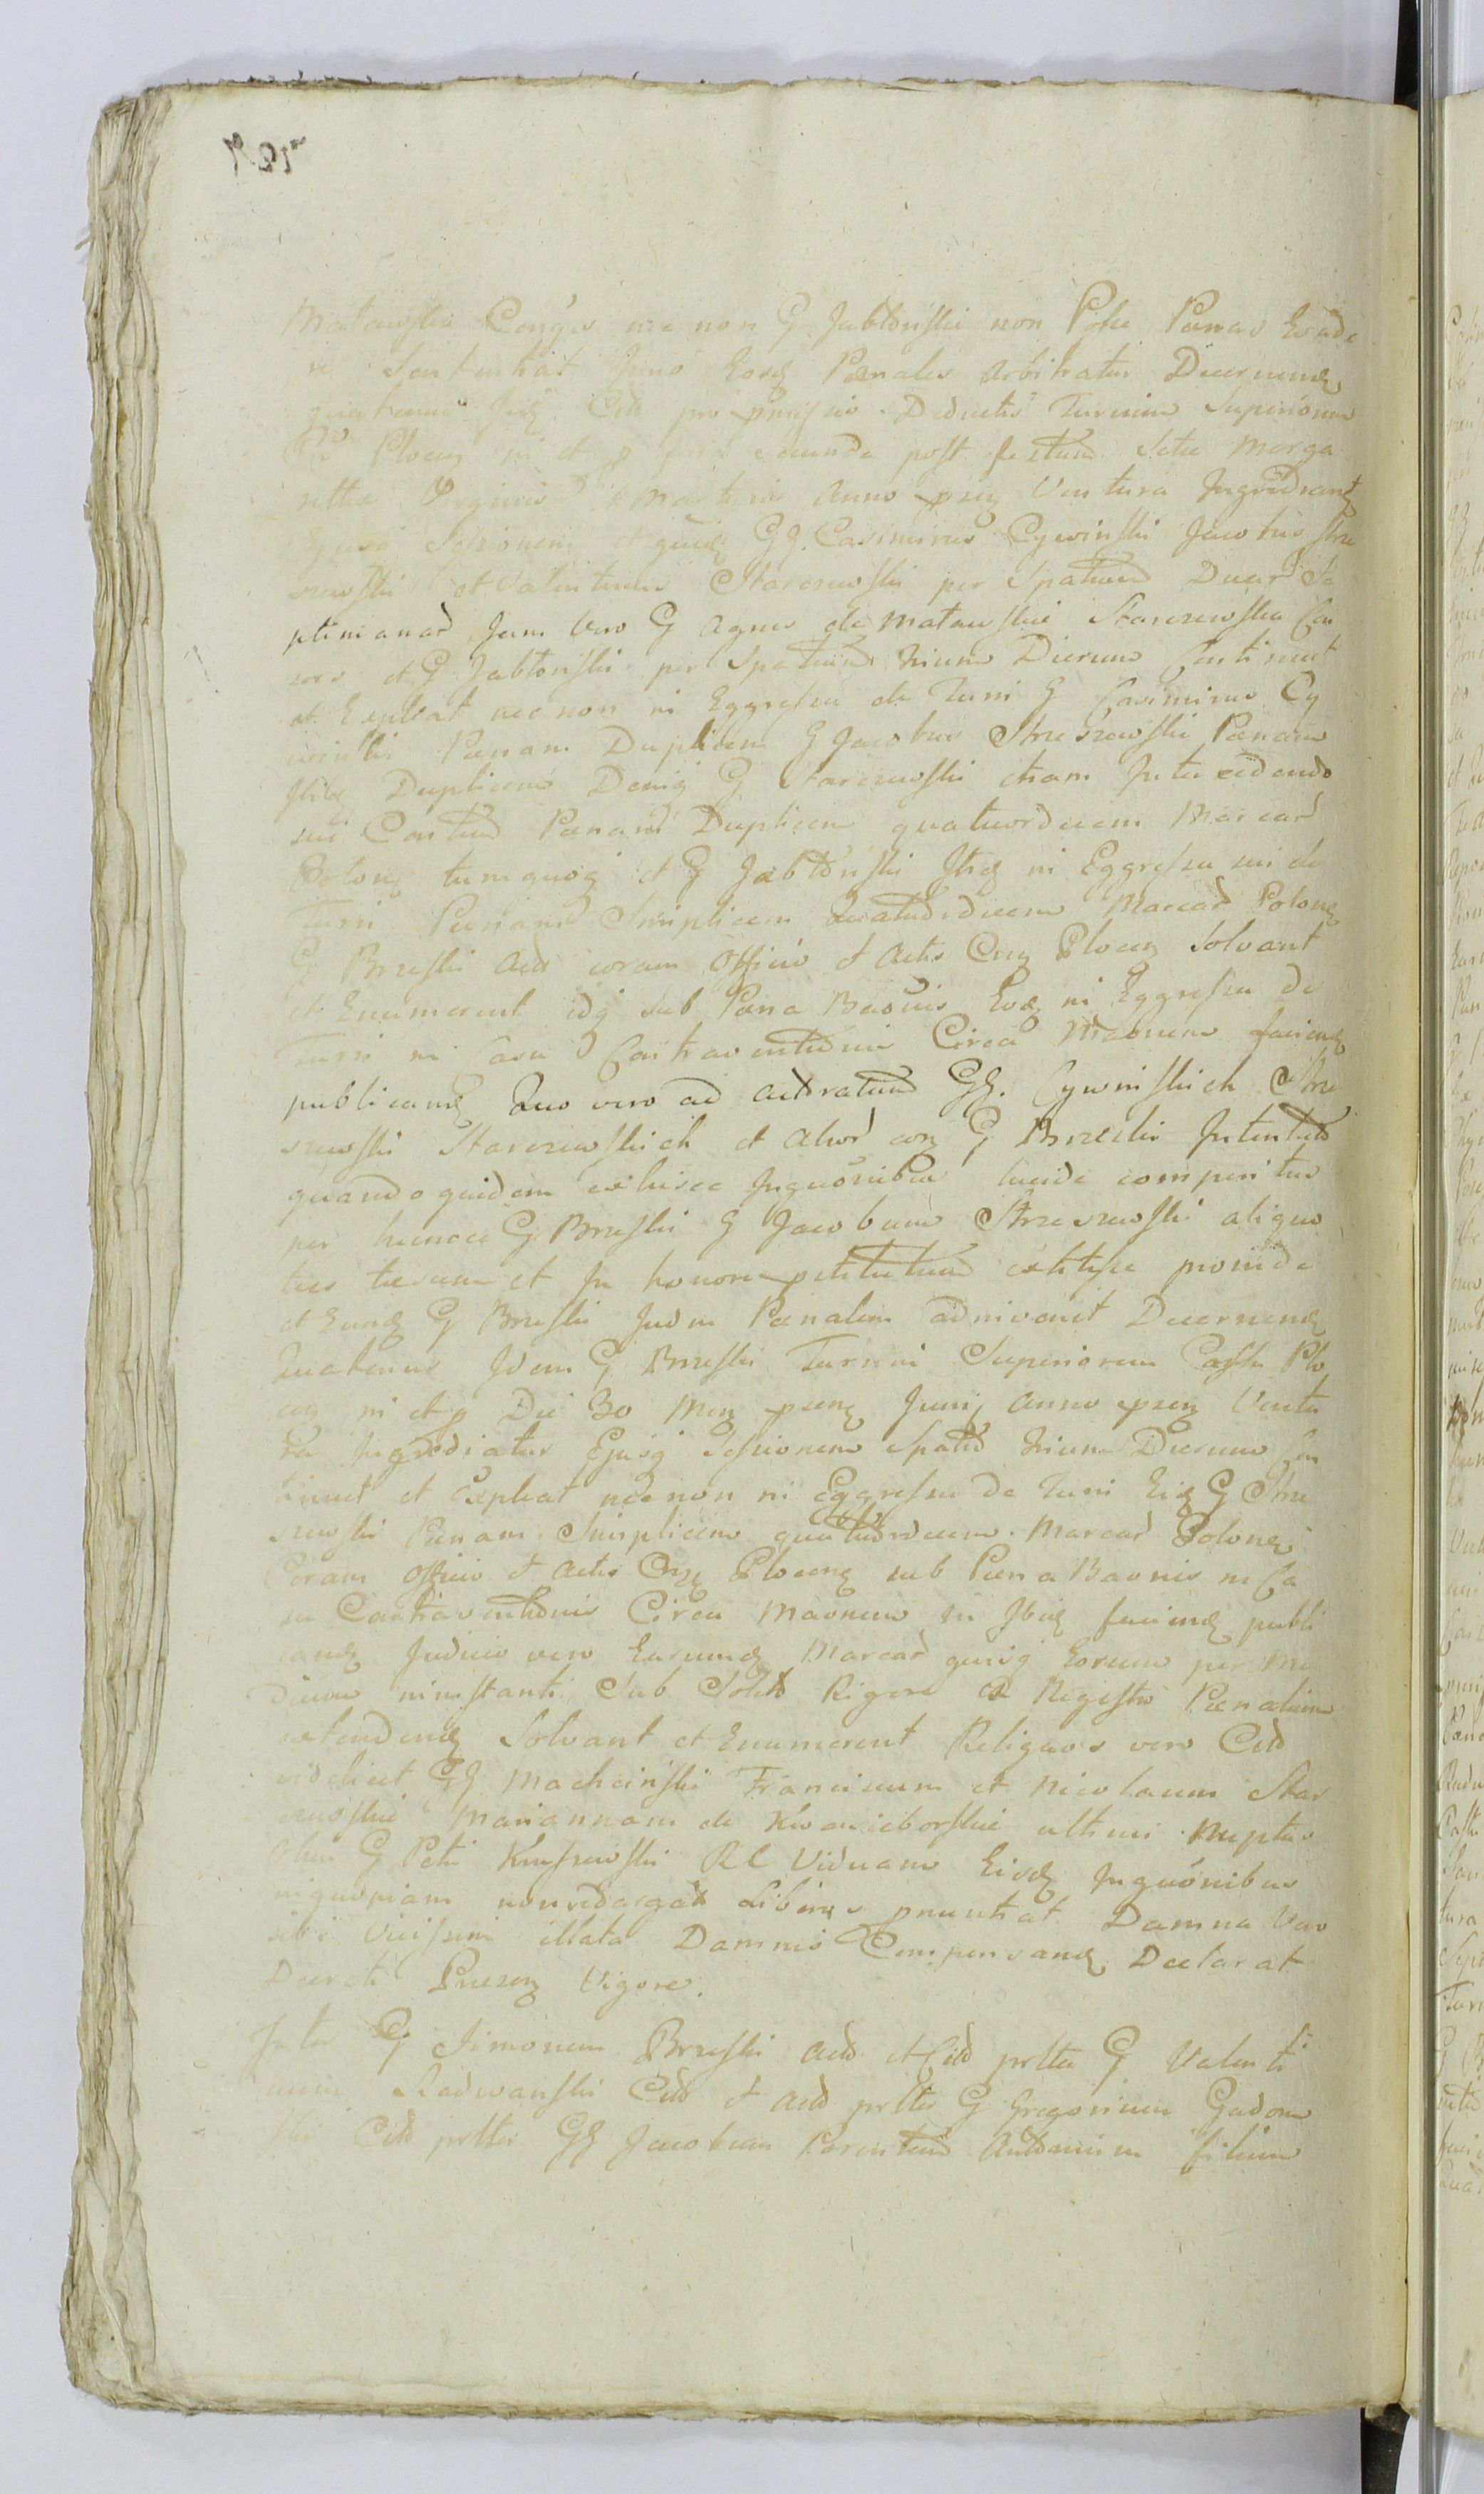 Matawskie Conges nec non G Jabłoński non Posse Pænas Evade
re Sententiat Imo Eosq Pænales Arbitratur Decernendq
quatenus Iidq Citti pro pmissis Deductis Turrim Superiorem
Cast Plocen in et p feria secunda post festum Sctæ Marga
rettæ Virginis & Martyris Anno psen Ventura Ingrediantq
Ejusq Sessionem et quidq GG. Casimirus Cywinski Jacobus Strze
szewski et Valentinus Starczewski per Spatium Duard Se
ptimanard Jam Vero G Agnes de Matawskie Starczewska Con
sors et G Jabłoński per Spatium trium Dierum Continuent
et Expleat nec non in Eggressu de Turri G Casimirus Cy
winski Pænam Duplicem G Jacobus Strzeszewski Pænam
Itidq Duplicem Deniq G Starczewski etiam Intercedendo
sui Consortem Pænam Duplicem quatuordecem Marcard
Polonq tum quoq et G Jabłoński Itidq in Eggressu sui de
Turri Pænam Simplicem Quatuordecem Marcard Polonq
G Brzeski Acto coram Officio et Actis Crzq Plocen Solvant
et Enumerent idq sub Pæna Baōnis Eosq in Eggressu de
Turri in Casu Contraventionis Circa Māonem faciendq
publicandq Quo vero ad Actoratum GG. Cywinskich Strze
szewski Starczewskich et Aliord cong G Brzeski Intentato
quandoquidem ex hisce Inquōnibus lucide comperitur
per huncce G Brzeski G Jacobum Strzeszewski aliquo
ties læsum et In honore petitutum extitisse proinde
et Eundq G Brzeski Judm Pænalem adinvenit Decernendq
Quatenus Idem G Brzeski Turrim Superiorem Castr Plo
cen in et p Die 30 Men psenq Junij Anno psen Ventu
ra Ingrediatur Ejusq Sessionem Spatio trium Dierum Con
tinuet et Expleat nec non in Eggressu de Turri Eidq G Strze
szewski Pænam Simplicem quatuordecem Marcard Polonq
Coram Officio et Actis Crzq Plocenq sub Pæna Baonis in Ca
su Contraventionis Circa Maonem in Ibidq faciendq publi
candq Judicio vero Earumdq Marcard quisq Eorum per Me
dium ninstanti Sub Solito Rigore a Regestro Pænalium
extendendq Solvant et Enumerent Reliquos vero Citto
videlicet GG Macheinski Franciscum et Nicolaum Star
czewskie Mariannam de Kwanieborskie ultimi Nuptus
Olim G Petri Kruszewski RC Viduam Eisdq Inquōnibus
niquopiam nonredargutos Liberos pnuntiat Damna Vero
sibi Vicissim illata Damnis Compensandq Declarat
Decreti Præsenq Vigore.
Inter G Simonem Brzeski Acto et Citto prtta G Valenti
num Radwanski Citto et Acto prtta G Gregorium Gadom
ski Citto prtta GG Jacobum Parentem Antonium filium